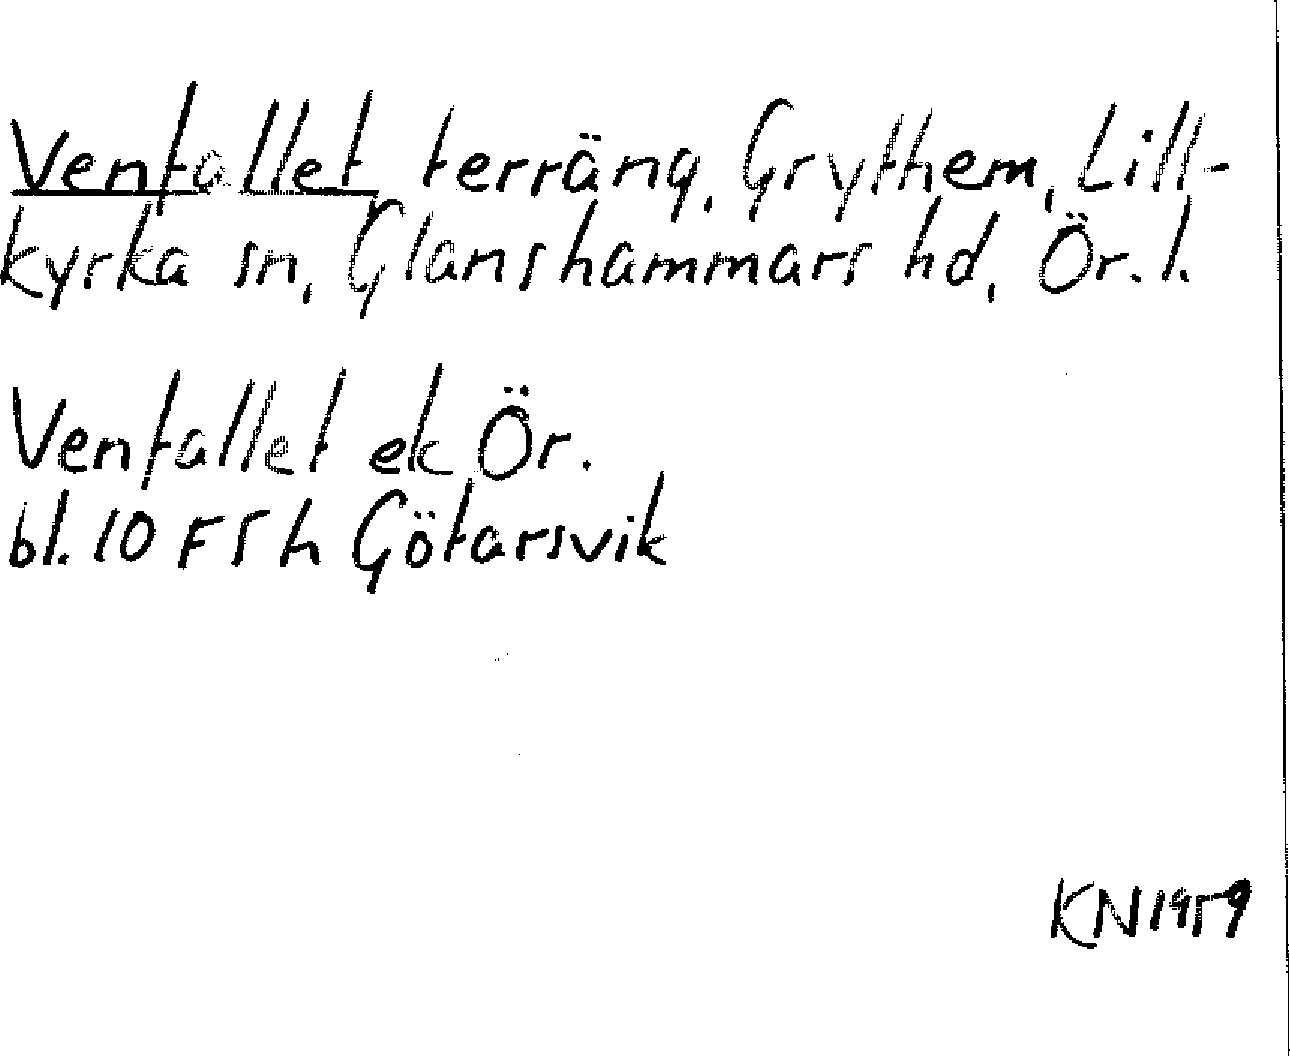 Venfallet terräng, Grythem, Lill-
kyrka sn, Glanshammars hd, Ör. l.
Venfallet ek Ör.
bl. 10 F 5 h Götarsvik
KN 1959